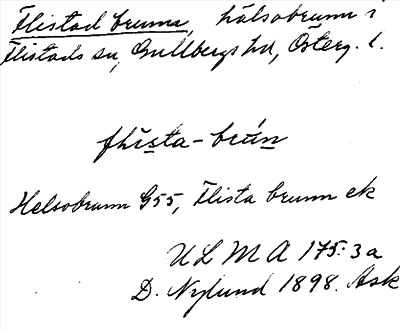 Flistad brunn, hälsobrunn i
Flistads sn, Gullbergs hd, Österg. l.
flista-brún
Helsobrunn G55, Flista brunn ek
ULMA 175:3a
D. Nylund 1898. Ask